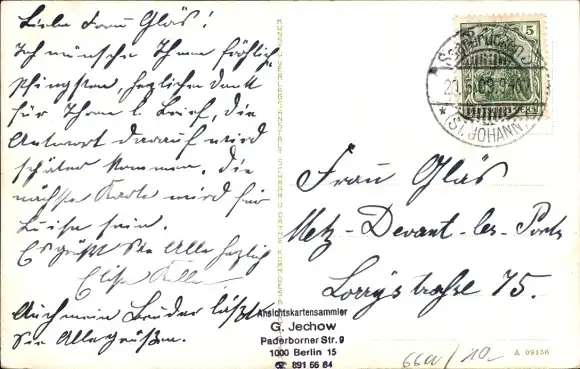 Liebe Frau Gläs!
Ich wünsche Ihnen fröhlich
Pfingsten, herzlichen Dank
für Ihren l. Brief, die
Antwort darauf wird
später kommen. Die
nächste Karte wird für
Luise sein.
Es grüßt Sie Alle herzlich
Elise
Auch mein Bruder läßt
Sie Alle grüßen.
Saarbrücken
(ST. JOHANN)
5
Frau Gläs
Metz-Devant-les-Ponts
Lorrystrasse 75.
Ansichtskartensammler
G. Jechow
Paderborner Str. 9
1000 Berlin 15
☎ 891 66 84
66a/10
A 09156